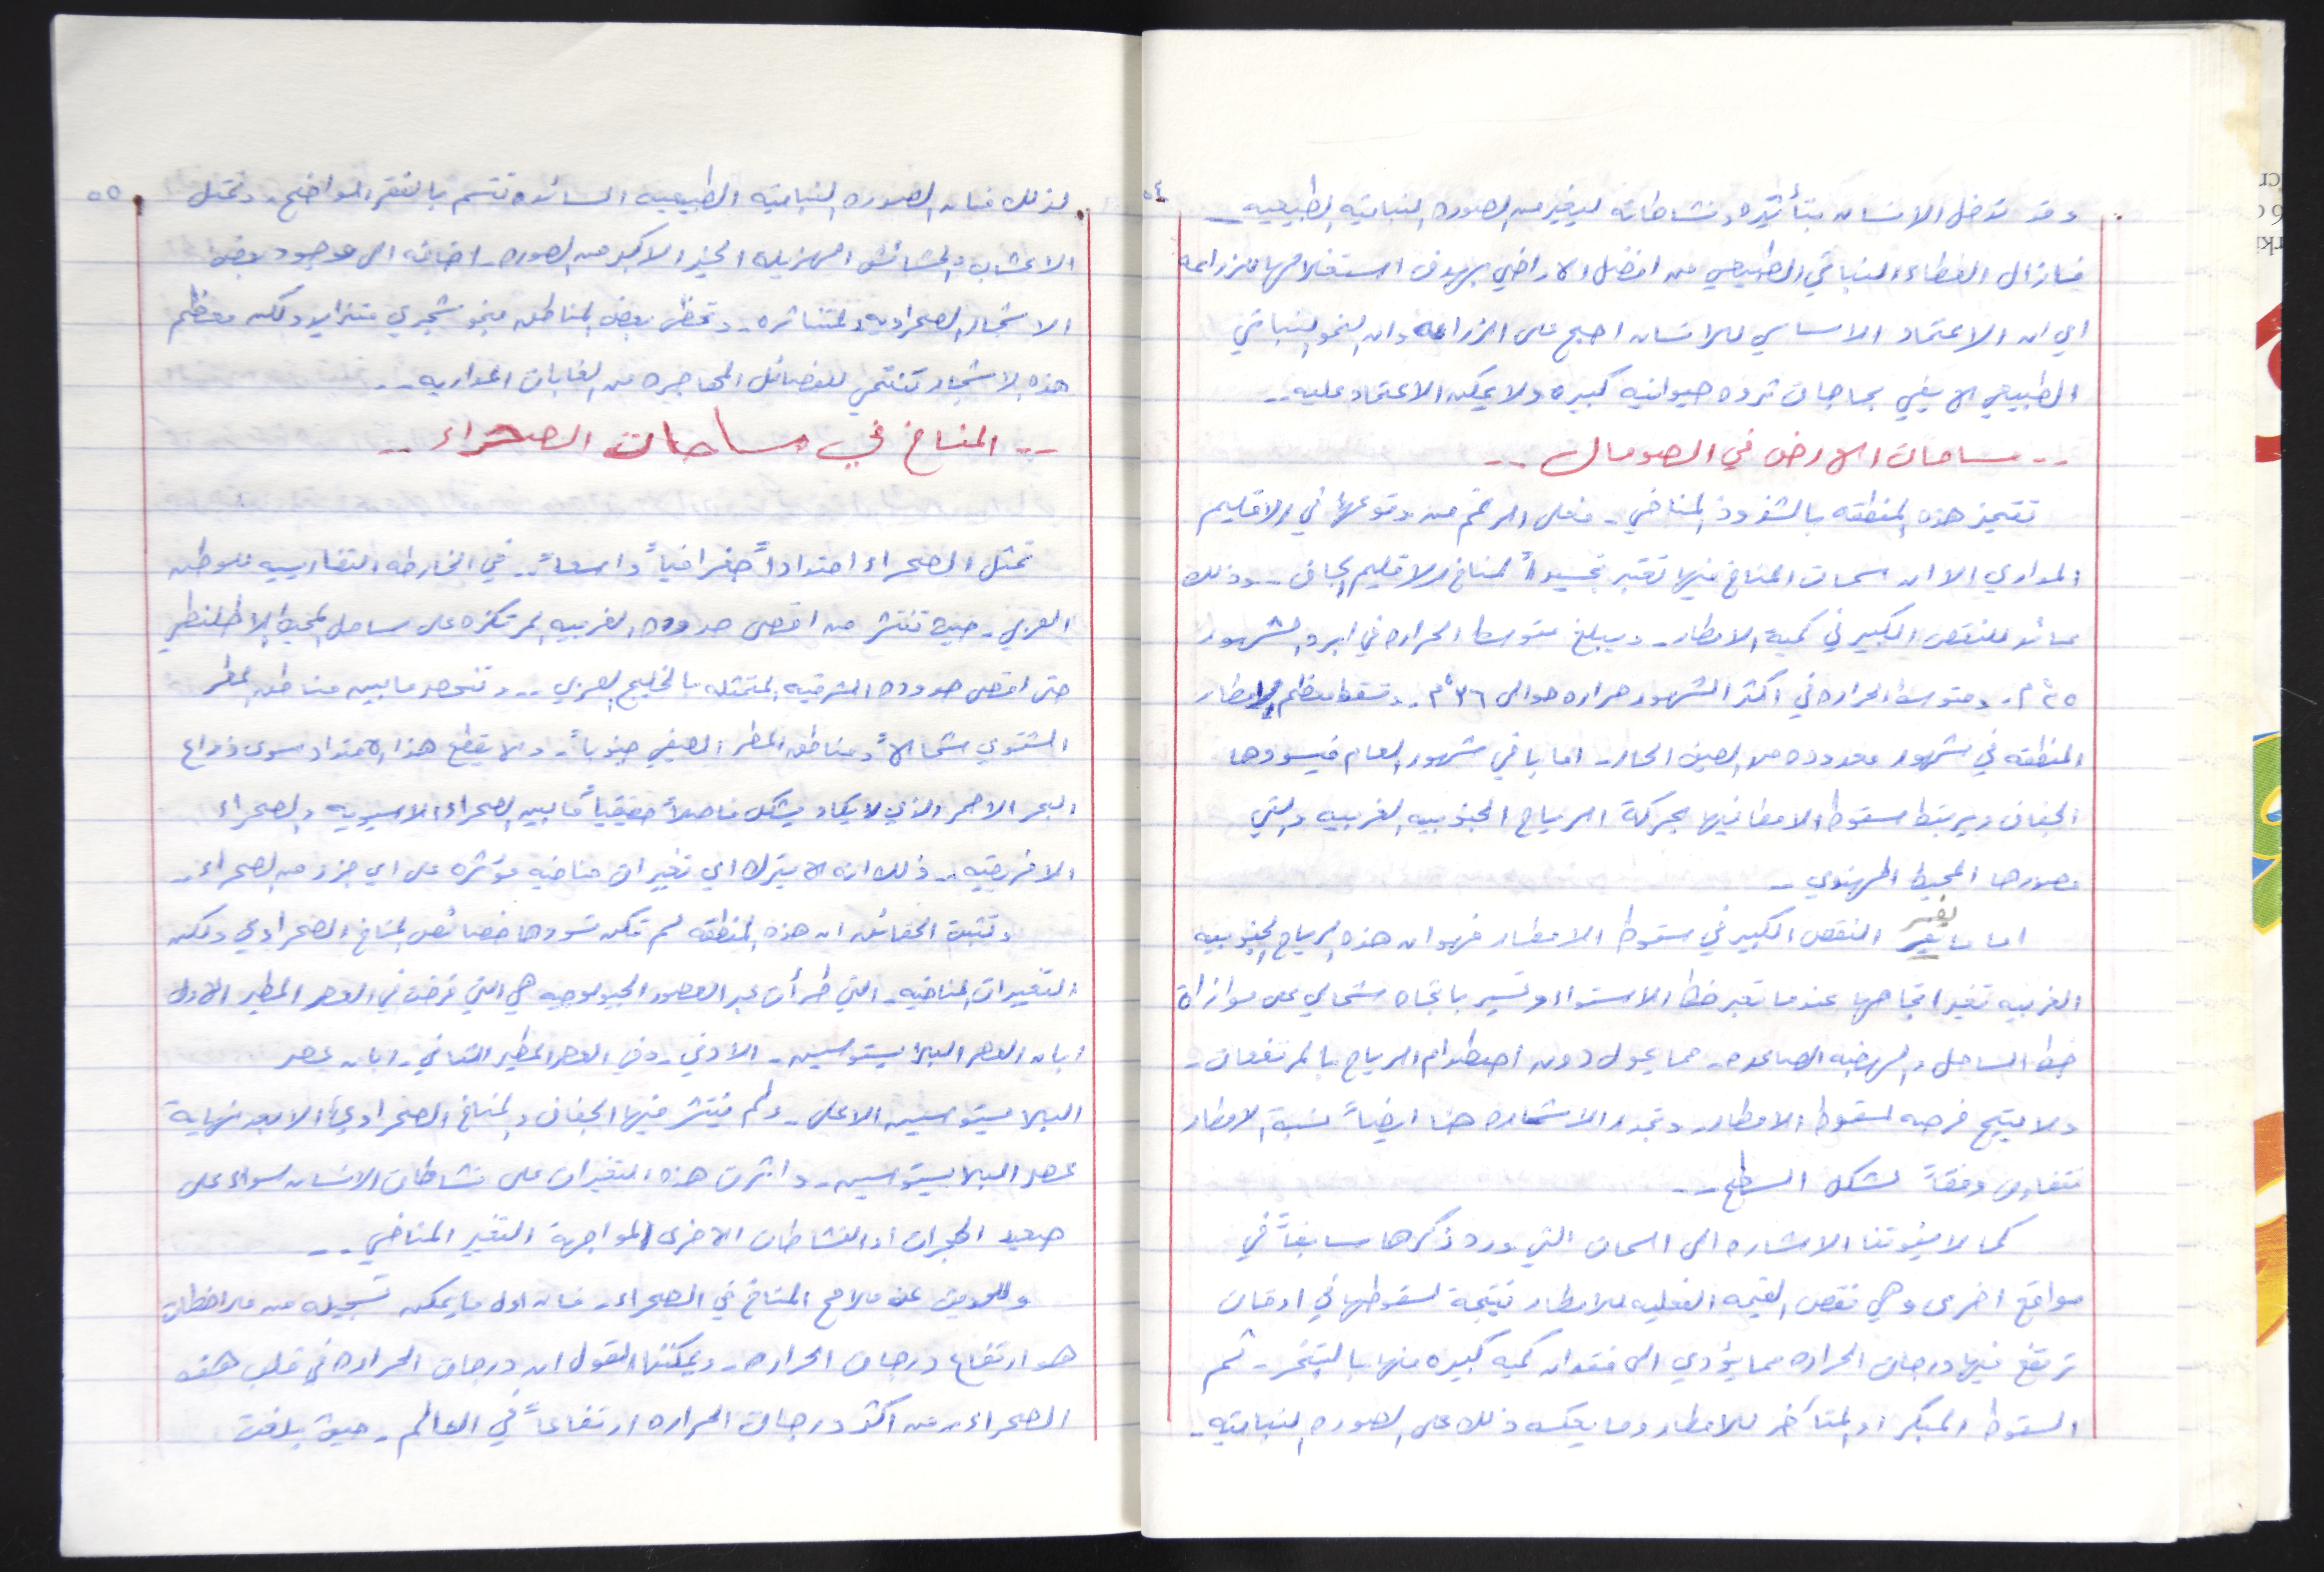 ٥٤
وقد تدخل الانسان بتأثيره ونشاطاته ليغير من الصوره النباتيه الطبيعيه ..
فازال الغطاء النباتي الطبيعي من افضل الاراضي بهدف استغلالها للزراعه
اي ان الاعتماد الاساسي للانسان اصبح على الزراعه وان النمو النباتي
الطبيعي لا يفي بحاجات ثروه حيوانيه كبيره ولا يمكن الاعتماد عليه ..
.. مساحات الارض في الصومال ..
تتميز هذه المنطقه بالشذوذ المناخي . فعلى الرغم من وقوعها في الاقليم
المداري الا ان سمات المناخ فيها تعتبر تجسيداً لمناخ الاقليم الجاف .. وذلك
عائد للنقص الكبير في كمية الامطار . ويبلغ متوسط الحراره في ابرد الشهور
٢٥ْم . ومتوسط الحراره في اكثر الشهور حراره حوالى ٣٦ْم . وتسقط معظم امطار
المنطقه في شهور معدوده من الصيف الحار . اما باقي شهور العام فيسودها
الجفاف ويرتبط سقوط الامطار فيها بحركة الرياح الجنوبيه الغربيه والتي
مصدرها المحيط الهندي ..
اما ما يفسر النقص الكبير في سقوط الامطار فهو ان هذه الرياح الجنوبيه
الغربيه تغير اتجاهها عندما تعبر خط الاستواء وتسير باتجاه شمالي على موازاة
خط الساحل والهضبه الصاعده . مما يحول دون اصطدام الرياح بالمرتفعات .
ولا يتيح فرصه لسقوط الامطار . وتجدر الاشاره هنا ايضاً نسبة الامطار
تتفاوت وفقاً لشكل السطح ..
كما لا يفوتنا الاشاره الى السمات التي ورد ذكرها سابقاً في
مواقع اخرى وهي نقص القيمه الفعليه للامطار نتيجة لسقوطها في اوقات
ترتفع فيها درجات الحراره مما يؤدي الى فقدان كميه كبيره منها بالتبخر . ثم
السقوط المبكر او المتأخر للامطار وما يعكسه ذلك على الصوره النباتيه .
٥٥
لذلك فان الصوره النباتيه الطبيعيه السائده تتسم بالفقر الواضح . وتحتل
الاعشاب والحشائش الهزيله الحيز الاكبر من الصوره . اضافه الى وجود بعض
الاشجار الصحراويه والمتناثره . وتحظى بعض المناطق بنمو شجري متزايد ولكن معظم
هذه الاشجار تنتمي للفصائل المهاجره من الغابات المداريه ..
.. المناخ في مساحات الصحراء ..
تمثل الصحراء امتداداً جغرافياً واسعاً .. في الخارطه التضاريسيه للوطن
العربي . حيث تنتشر من اقصى حدوده الغربيه المرتكزه على ساحل المحيط الاطلنطي
حتى اقصى حدوده الشرقيه المتمثله بالخليج العربي ... وتنحصر ما بين مناطق المطر
الشتوي شمالاً ومناطق المطر الصيفي جنوباً . ولا يقطع هذا الامتداد سوى ذراع
البحر الاحمر والذي لا يكاد يشكل فاصلاً حقيقياً ما بين الصحراء الاسيويه والصحراء
الافريقيه .. ذلك انه لا يترك اي تغيرات مناخيه مؤثره على اي جزء من الصحراء .
وتثبت الحقائق ان هذه المنطقه لم تكن تسودها خصائص المناخ الصحراوي ولكن
التغيرات المناخيه . التي طرأت عبر العصور الجيولوجيه هي التي فرضت في العصر المطير الاول
ابان العصر البلايستوسين . الادنى . وفي العصر المطير الثاني . ابان عصر
البلايستوسين الاعلى . ولم ينتشر فيها الجفاف والمناخ الصحراوي الا بعد نهاية
عصر البلايستوسين . واثرت هذه التغيرات على نشاطات الانسان سواء على
صعيد الهجرات او النشاطات الاخرى لمواجهة التغير المناخي ..
وللحديث عن ملامح المناخ في الصحراء . فان اول ما يمكن تسجيله من ملاحظات
هو ارتفاع درجات الحراره . ويمكننا القول ان درجات الحراره في قلب هذه
الصحراء . من اكثر درجات الحراره ارتفاعاً في العالم . حيث بلغت